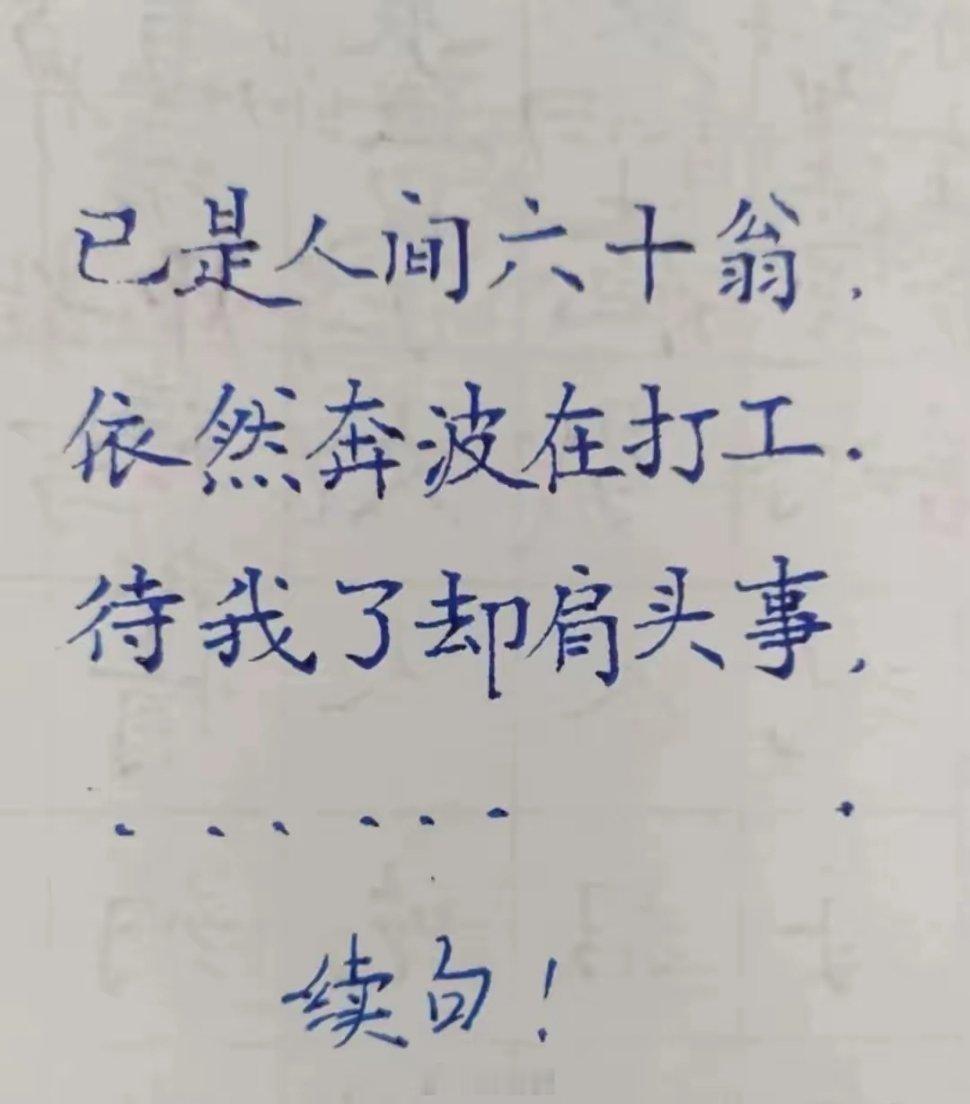 已是人间六十翁,
依然奔波在打工.
待我了却肩头事,
. . . . . . .
续句!